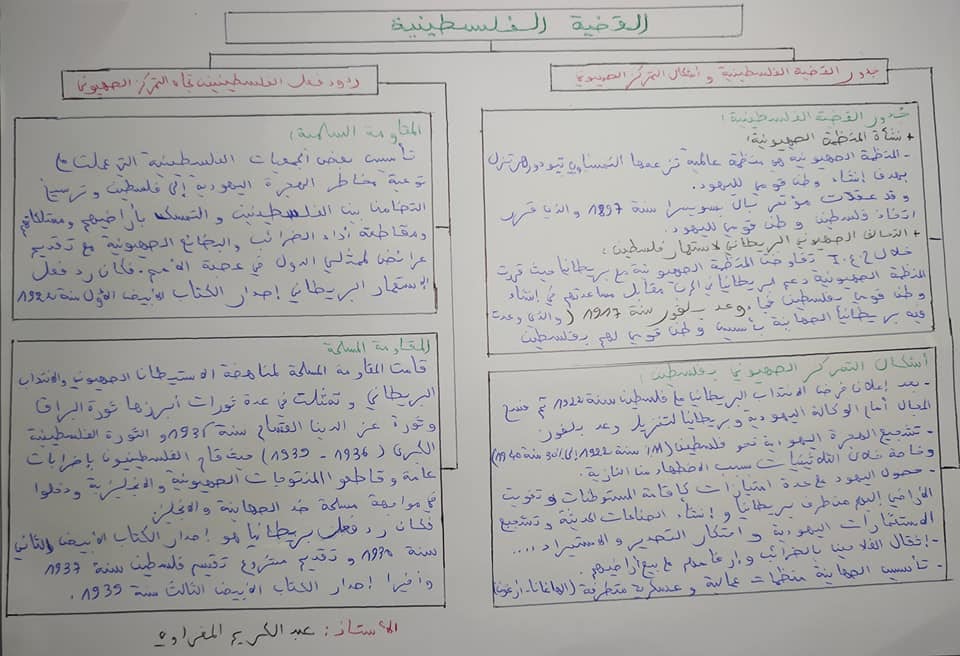 القضية الفلسطينية
جذور القضية الفلسطينية و أشكال التمركز الصهيوني
جذور القضية الفلسطينية:
+ نشأة المنظمة الصهيونية:
- المنظمة الصهيونية هو منظمة عالمية تزعمها النمساوي تيودور هرتزل
بهدف إنشاء وطن قومي لليهود.
وقد عقدت مؤتمر بال بسويسرا سنة 1897 والذي قرر
اتخاذ فلسطين وطن قومي لليهود.
+ التحالف الصهيوني البريطاني لاستعمار فلسطين:
خلال ح.ع.I تفاوضت المنظمة الصهيونية مع بريطانيا حيث قررت
المنظمة الصهيونية دعم البريطاني في الحرب مقابل مساعدتهم في إنشاء
وطن قومي بفلسطين فجاء وعد بلفور سنة 1917 (والذي وعدت
فيه بريطانيا الصهاينة بتأسيس وطن قومي لهم بفلسطين
أشكال التمركز الصهيوني بفلسطين:
- بعد إعلان فرض الانتداب البريطاني على فلسطين سنة 1922 تم فسح
المجال أمام الوكالة اليهودية وبريطانيا لتنزيل وعد بلفور
- تشجيع الهجرة اليهودية نحو فلسطين (11% سنة 1922 إلى 30% سنة 1940)
وخاصة خلال الثلاثينات بسبب الاضطهاد النازية.
- حصول اليهود على عدة امتيازات كإقامة المستوطنات وتفويت
الأراضي إليهم من طرف بريطانيا و إنشاء الصناعات الحديثة وتشجيع
الاستثمارات اليهودية و احتكار التصدير و الاستيراد ....
- إثقال الفلاحين بالضرائب و إرغامهم على بيع أراضيهم.
- تأسيس الصهاينة منظمات عمالية و عسكرية متطرفة (الهاغانا - ارغون)
ردود فعل الفلسطينيين تجاه التمركز الصهيوني
المقاومة السلمية:
تأسيس بعض الجمعيات الفلسطينية التي عملت على
توعية مخاطر الهجرة اليهودية إلى فلسطين و ترسيخ
التضامن بين الفلسطينيين و التمسك بأراضيهم وممتلكاتهم
ومقاطعة أداء الضرائب والبضائع الصهيونية مع تقديم
عرائض لممثلي الدول في عصبة الأمم. فكان رد فعل
الاستعمار البريطاني إصدار الكتاب الأبيض الأول سنة 1922
المقاومة المسلحة
قامت المقاومة المسلحة لمناهضة الاستيطان الصهيوني والانتداب
البريطاني و تمثلت في عدة ثورات أبرزها ثورة البراق
وثورة عز الدين القسام سنة 1935 و الثورة الفلسطينية
الكبرى (1936 - 1939) حيث قام الفلسطينيون بإضرابات
عامة و قاطعوا المنتوجات الصهيونية والانجليزية ودخلوا
في مواجهة مسلحة ضد الصهاينة والانجليز
فكان رد فعل بريطانيا هو إصدار الكتاب الأبيض الثاني
سنة 1930 و تقديم مشروع تقسيم فلسطين سنة 1937
وأخيرا إصدار الكتاب الأبيض الثالث سنة 1939.
الأستاذ: عبد الكريم المغراوي